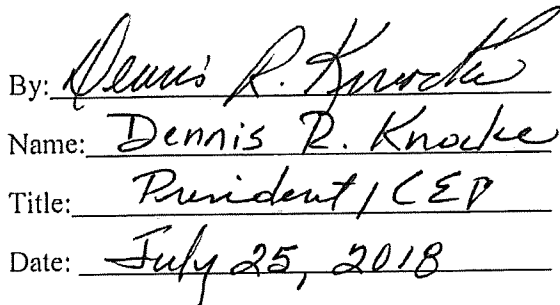 By: Dennis R. Knocke
Name: Dennis R. Knocke
Title: President, CEO
Date: July 25, 2018